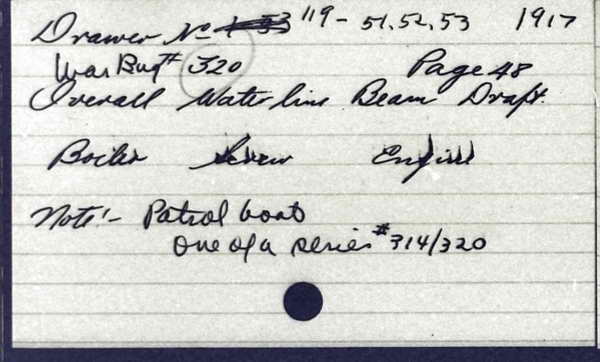 Drawer No 119 - 51, 52, 53 1917
Was Bug# 320 Page 48
Overall Water line Beam Draft.
Boiler Screw Engine
Note:- Patrol boat
One of a series #314/320